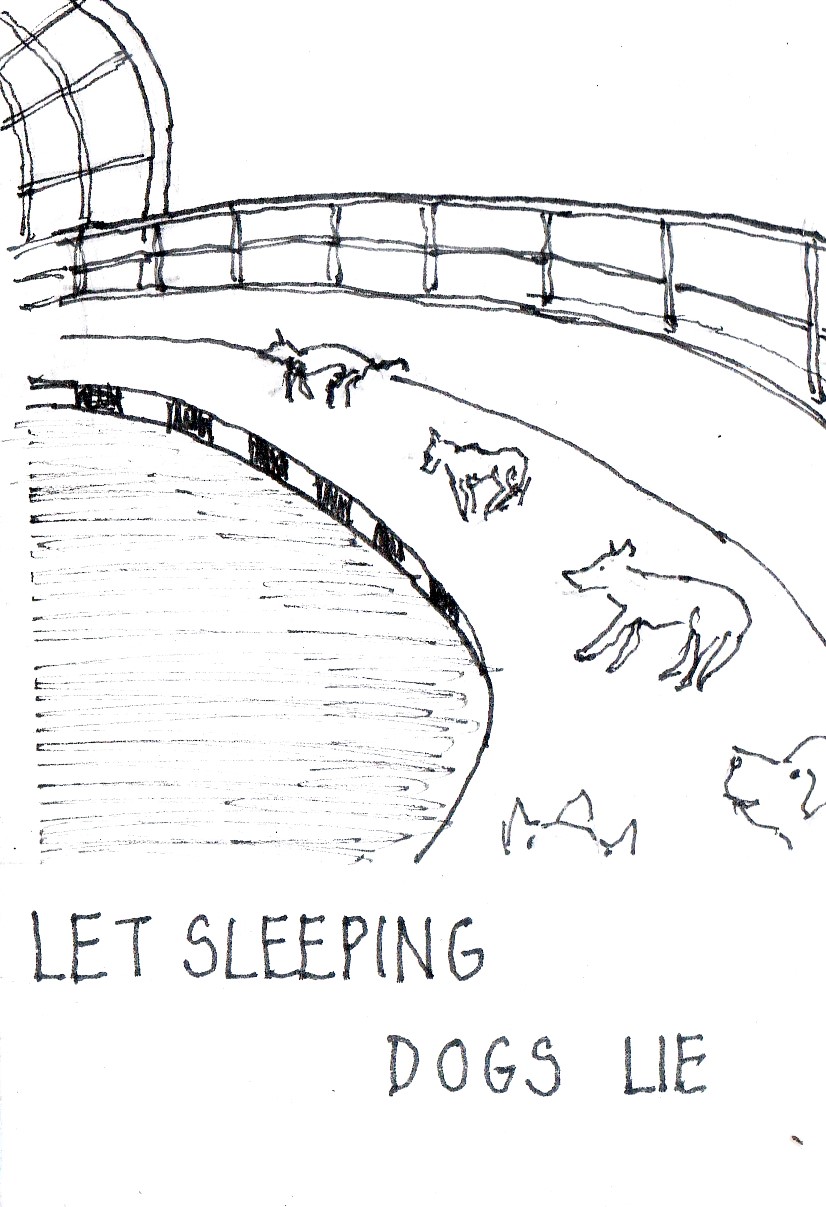 LET SLEEPING
DOGS LIE